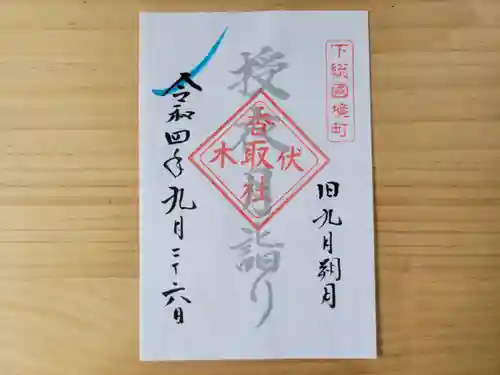 下総國境町
旧九月朔月
授衣月詣り
香取社
伏木
令和四年九月二十六日